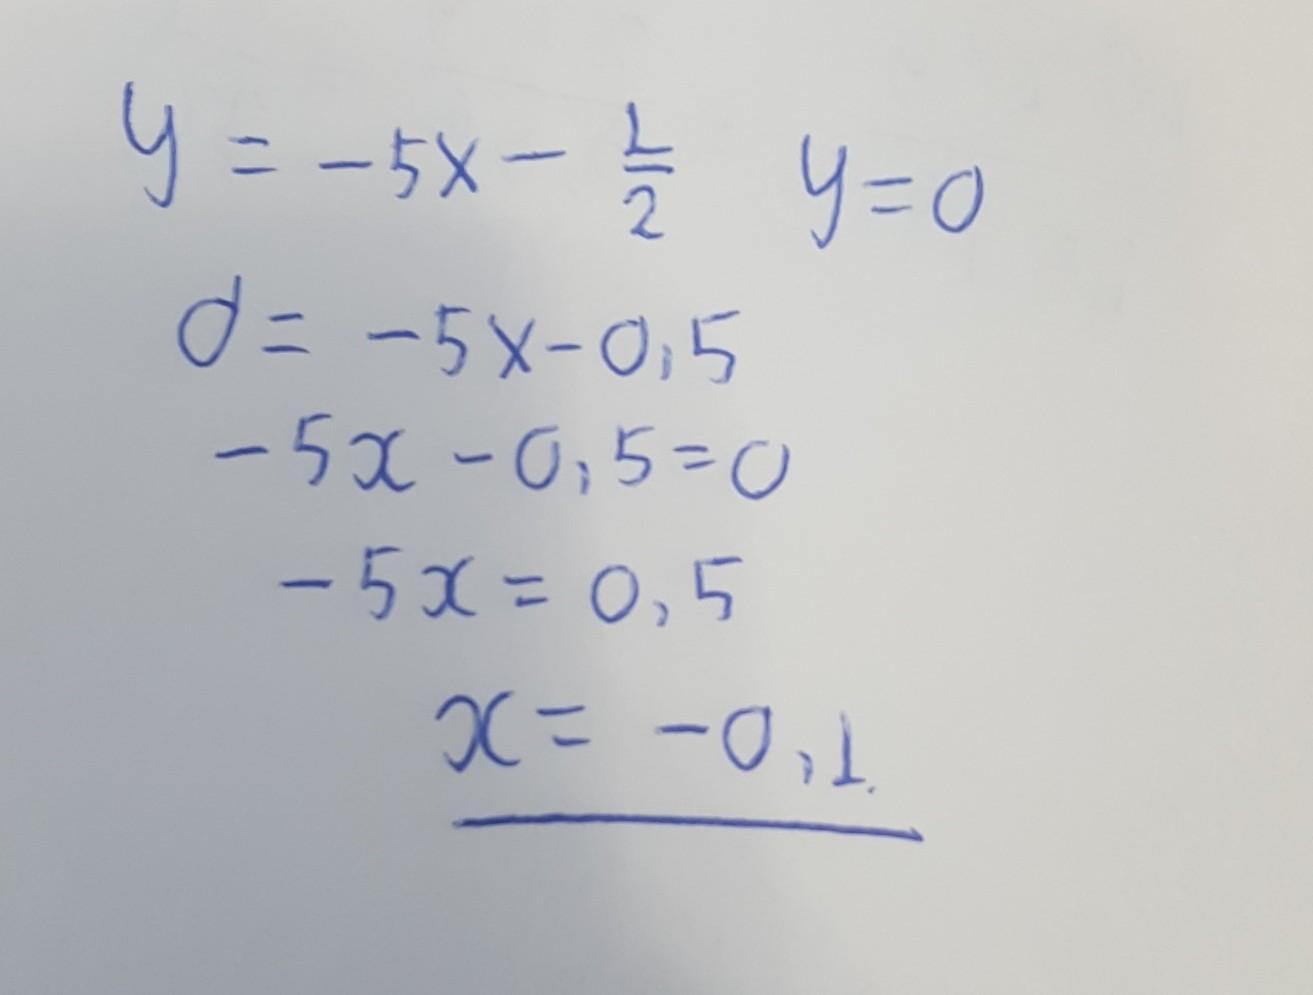 y = -5x - 1/2 y=0
0 = -5x-0,5
-5x -0,5=0
-5x = 0,5
x = -0,1.